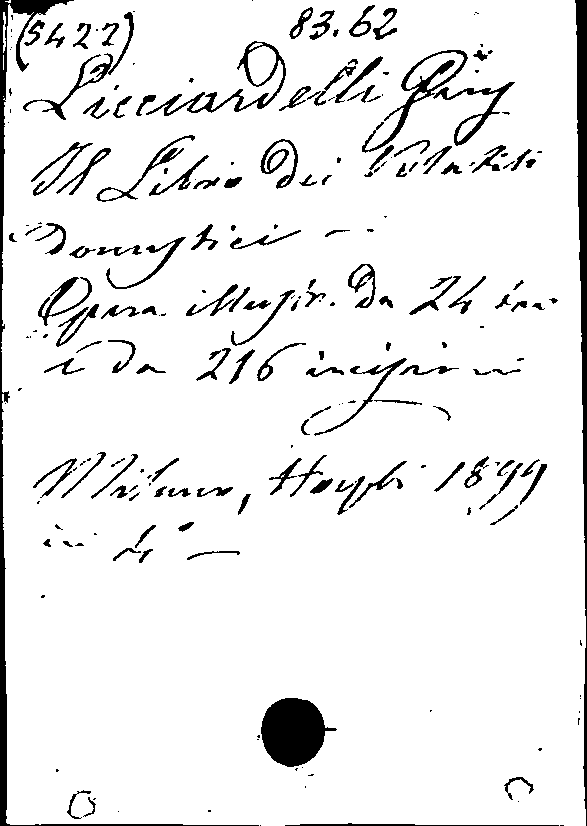 (5422) 83.62
Licciardelli
Il Libro dei Volatili
Domestici —.
Opera illustr. da 24
e da 216 incisioni
Milano, Hoepli 1899
in 4° —